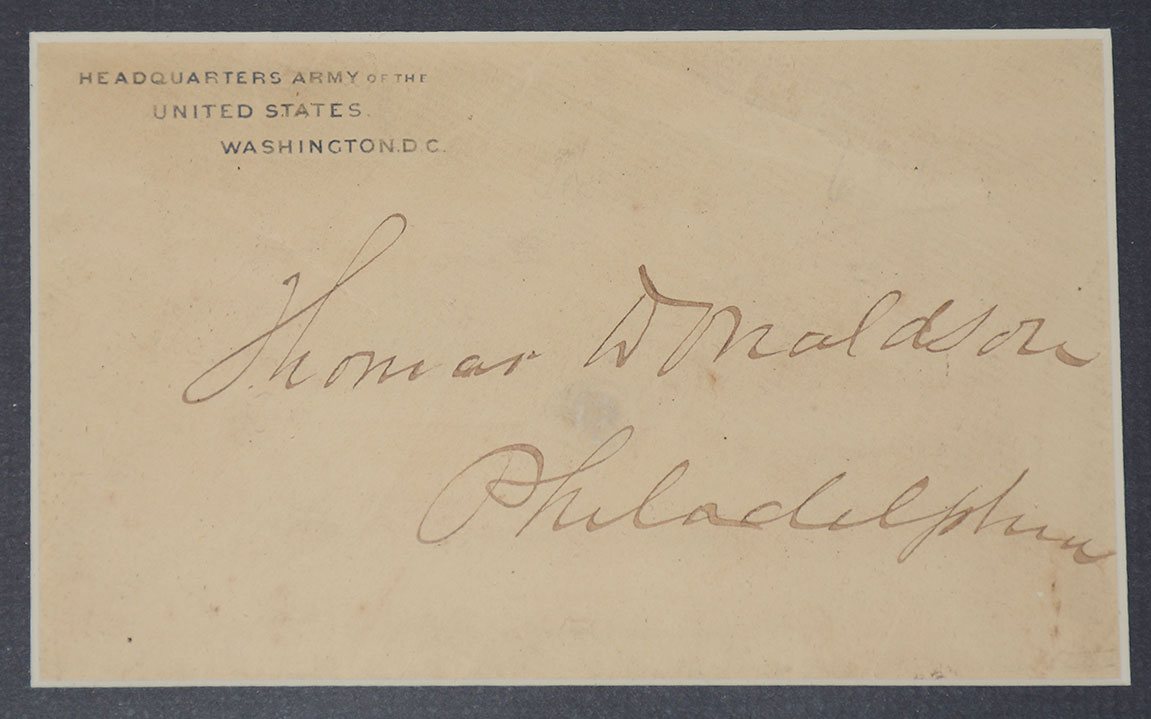 HEADQUARTERS ARMY OF THE
UNITED STATES.
WASHINGTON.D.C.
Thomas Donaldson
Philadelphia